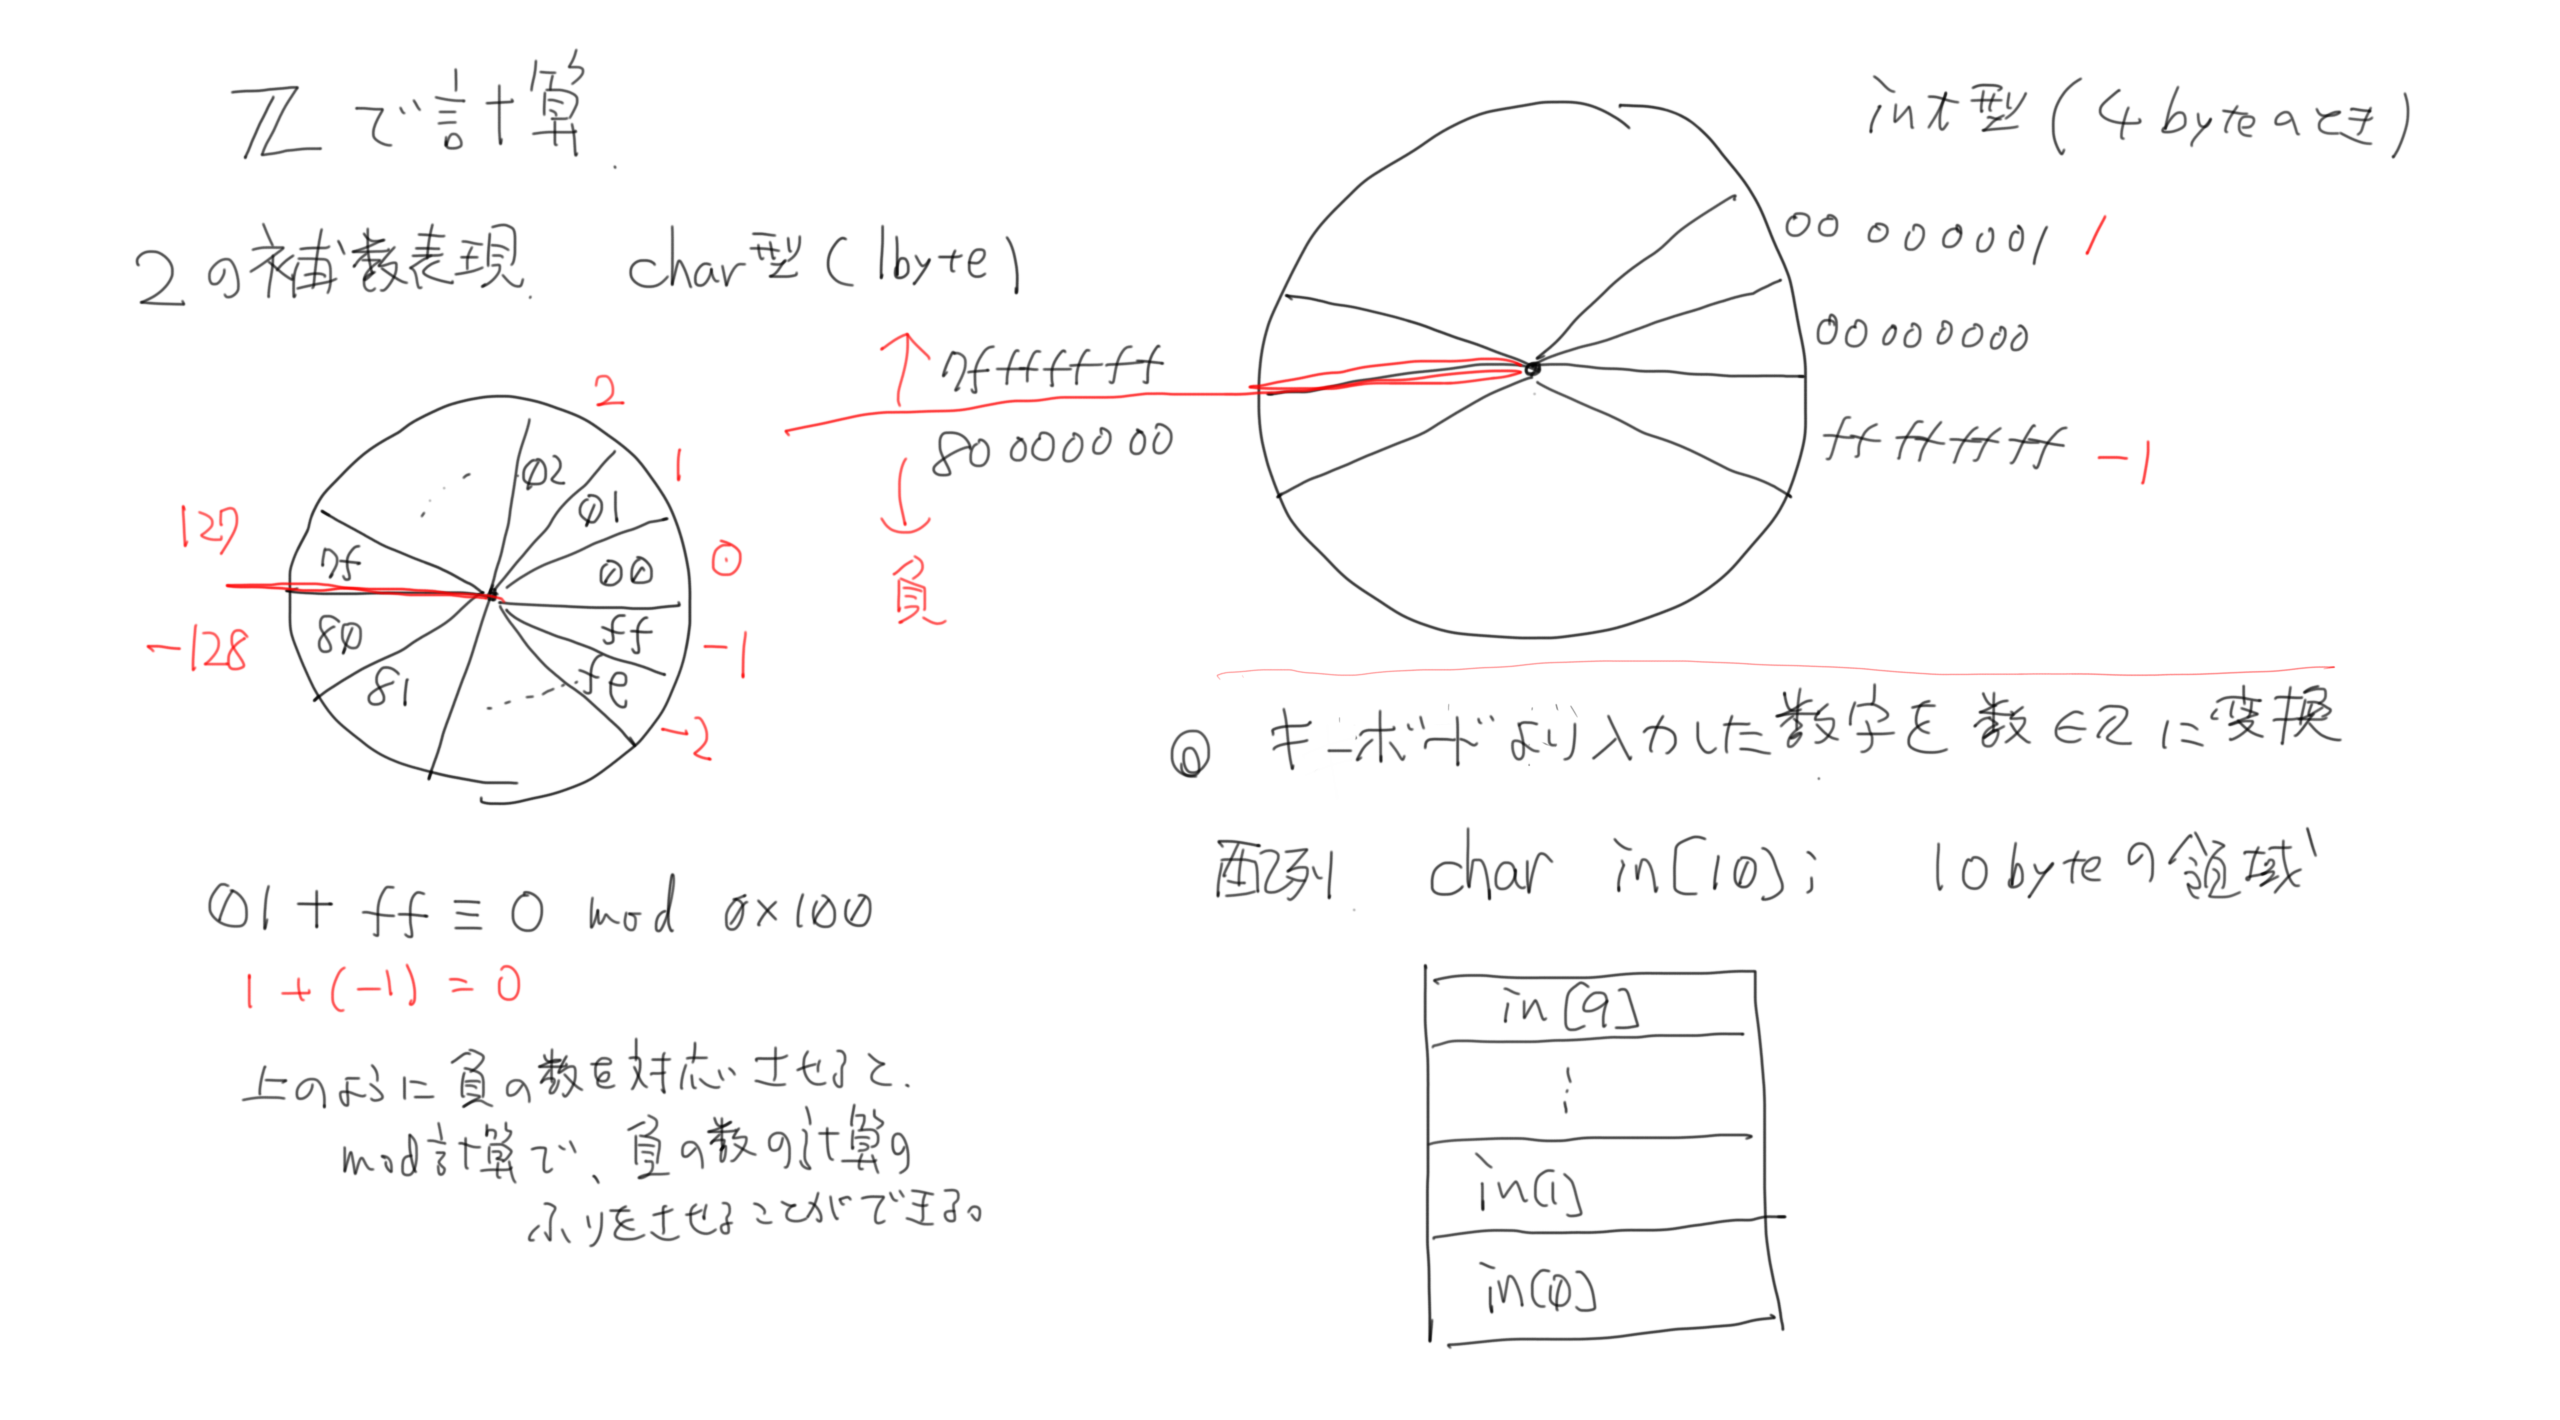 ℤで計算.
2の補数表現. char型(1byte)
2
1
0
-1
-2
127
-128
02
01
00
ff
fe
7f
80
81
01 + ff ≡ 0 mod 0x100
1 + (-1) = 0
上のように負の数を対応させると.
mod計算で、負の数の計算の
ふりをさせることができる。
int型(4byteのとき)
00 00 00 01 1
00 00 00 00
ff ff ff ff -1
7f ff ff ff
80 00 00 00
負
◎ キーボードより入力した数字を数∈ℤに変換
配列. char in[10]; 10byteの領域
in[9]
⋮
in[1]
in[0]